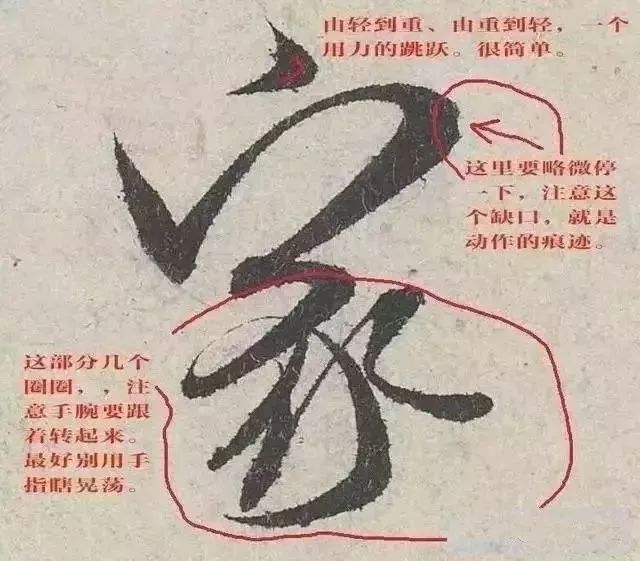 由轻到重、由重到轻，一个
用力的跳跃。很简单。
家
这里要略微停
一下，注意这
个缺口，就是
动作的痕迹。
这部分几个
圈圈，，注
意手腕要跟
着转起来。
最好别用手
指瞎晃荡。